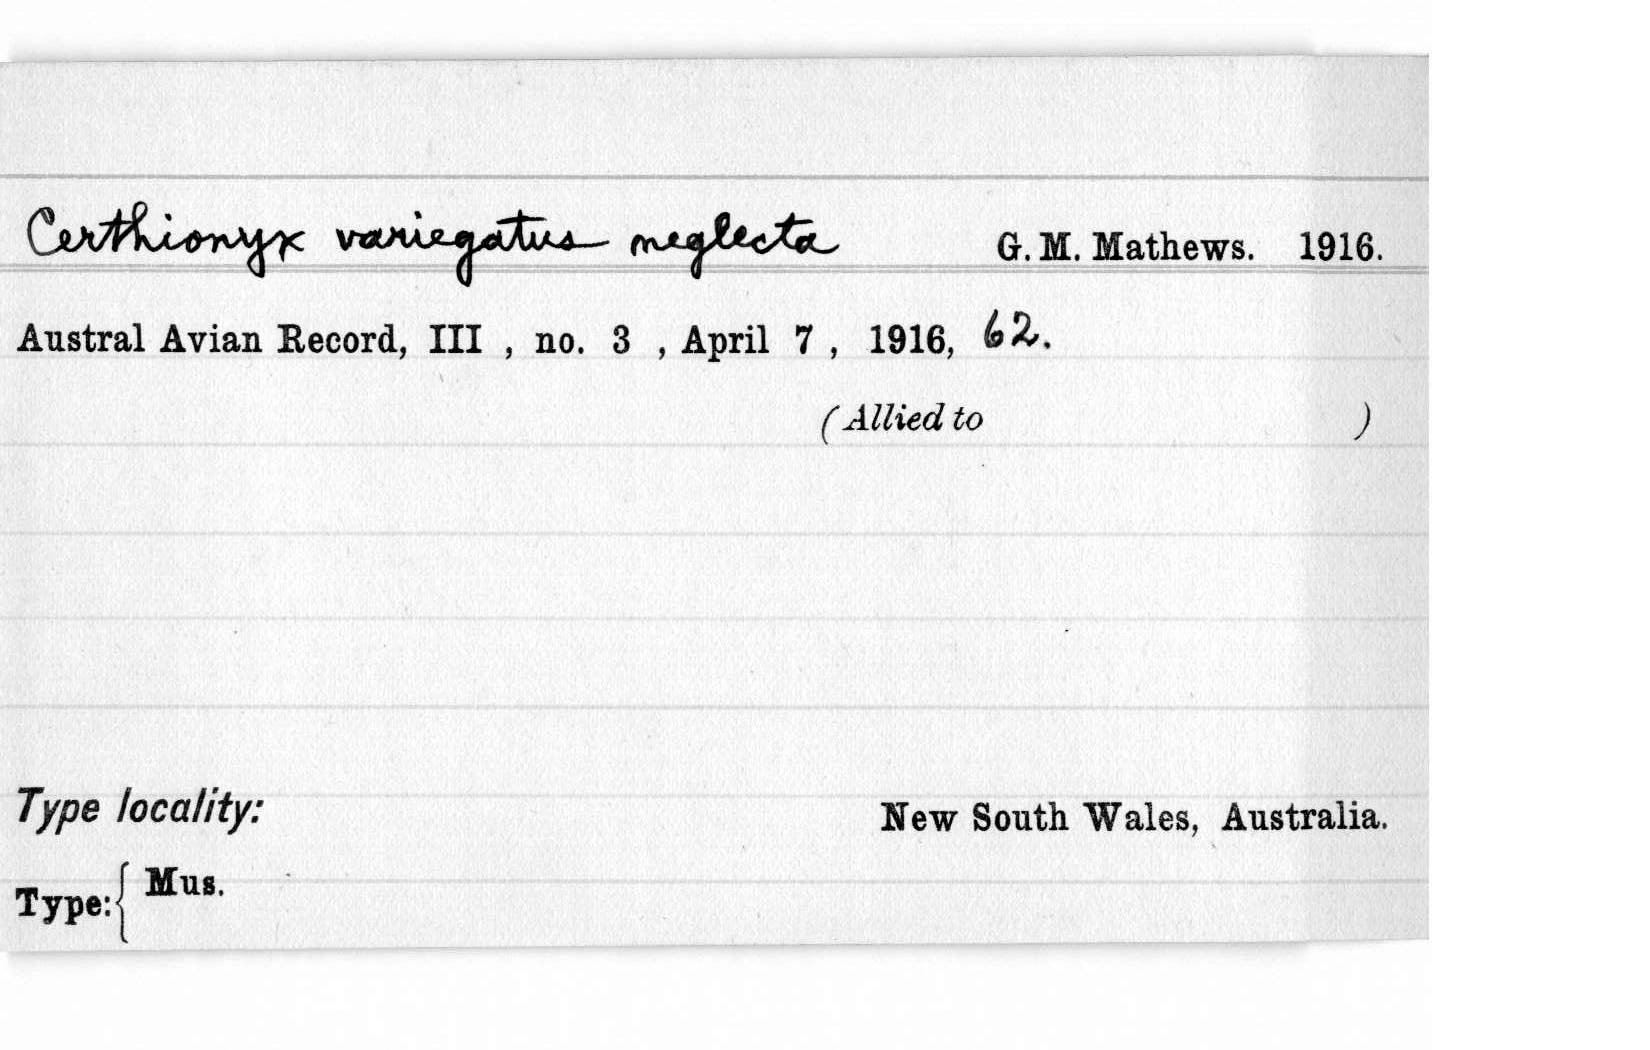 Certhionyx variegatus neglecta G. M. Mathews. 1916.
Austral Avian Record, III , no. 3 , April 7 , 1916, 62.
(Allied to )
Type locality: New South Wales, Australia.
Type:{ Mus.